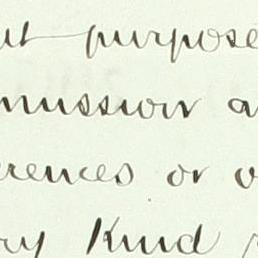 ut purpose
mission a
erences or o
ry Kind